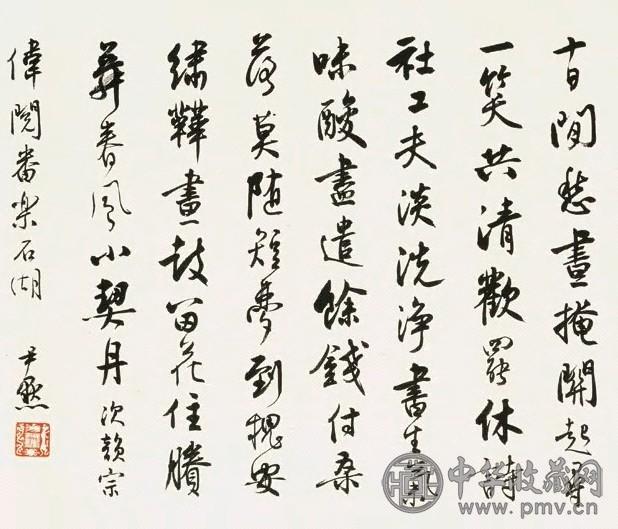 十日閒愁晝掩關起尋
一笑共清歡罷休詩
社工夫淡洗淨書生氣
味酸盡遣餘錢付桑
落莫随短夢到槐安
繡鞾畫鼓留花住賸
舞春風小契丹 次韻宗
偉閱番樂石湖 尹默
中华收藏网
www.pmv.cn